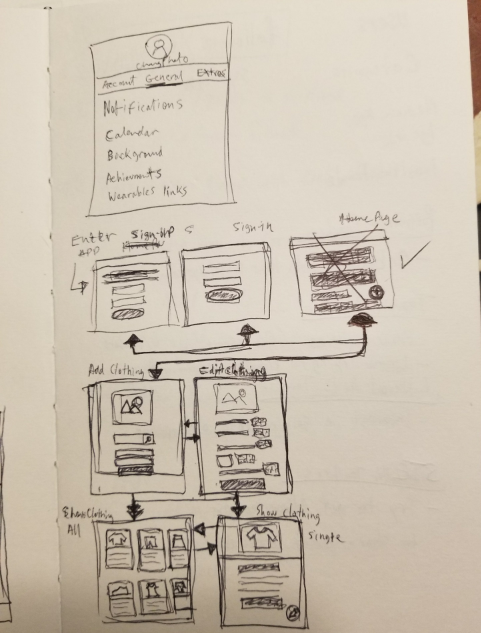 change photo
Account General Extras
Notifications
Calendar
Background
Achievments
Wearables links
Enter APP
Sign-up
Sign-in
Home Page
Add Clothing
Edit Clothing
Show Clothing All
Show Clothing Single